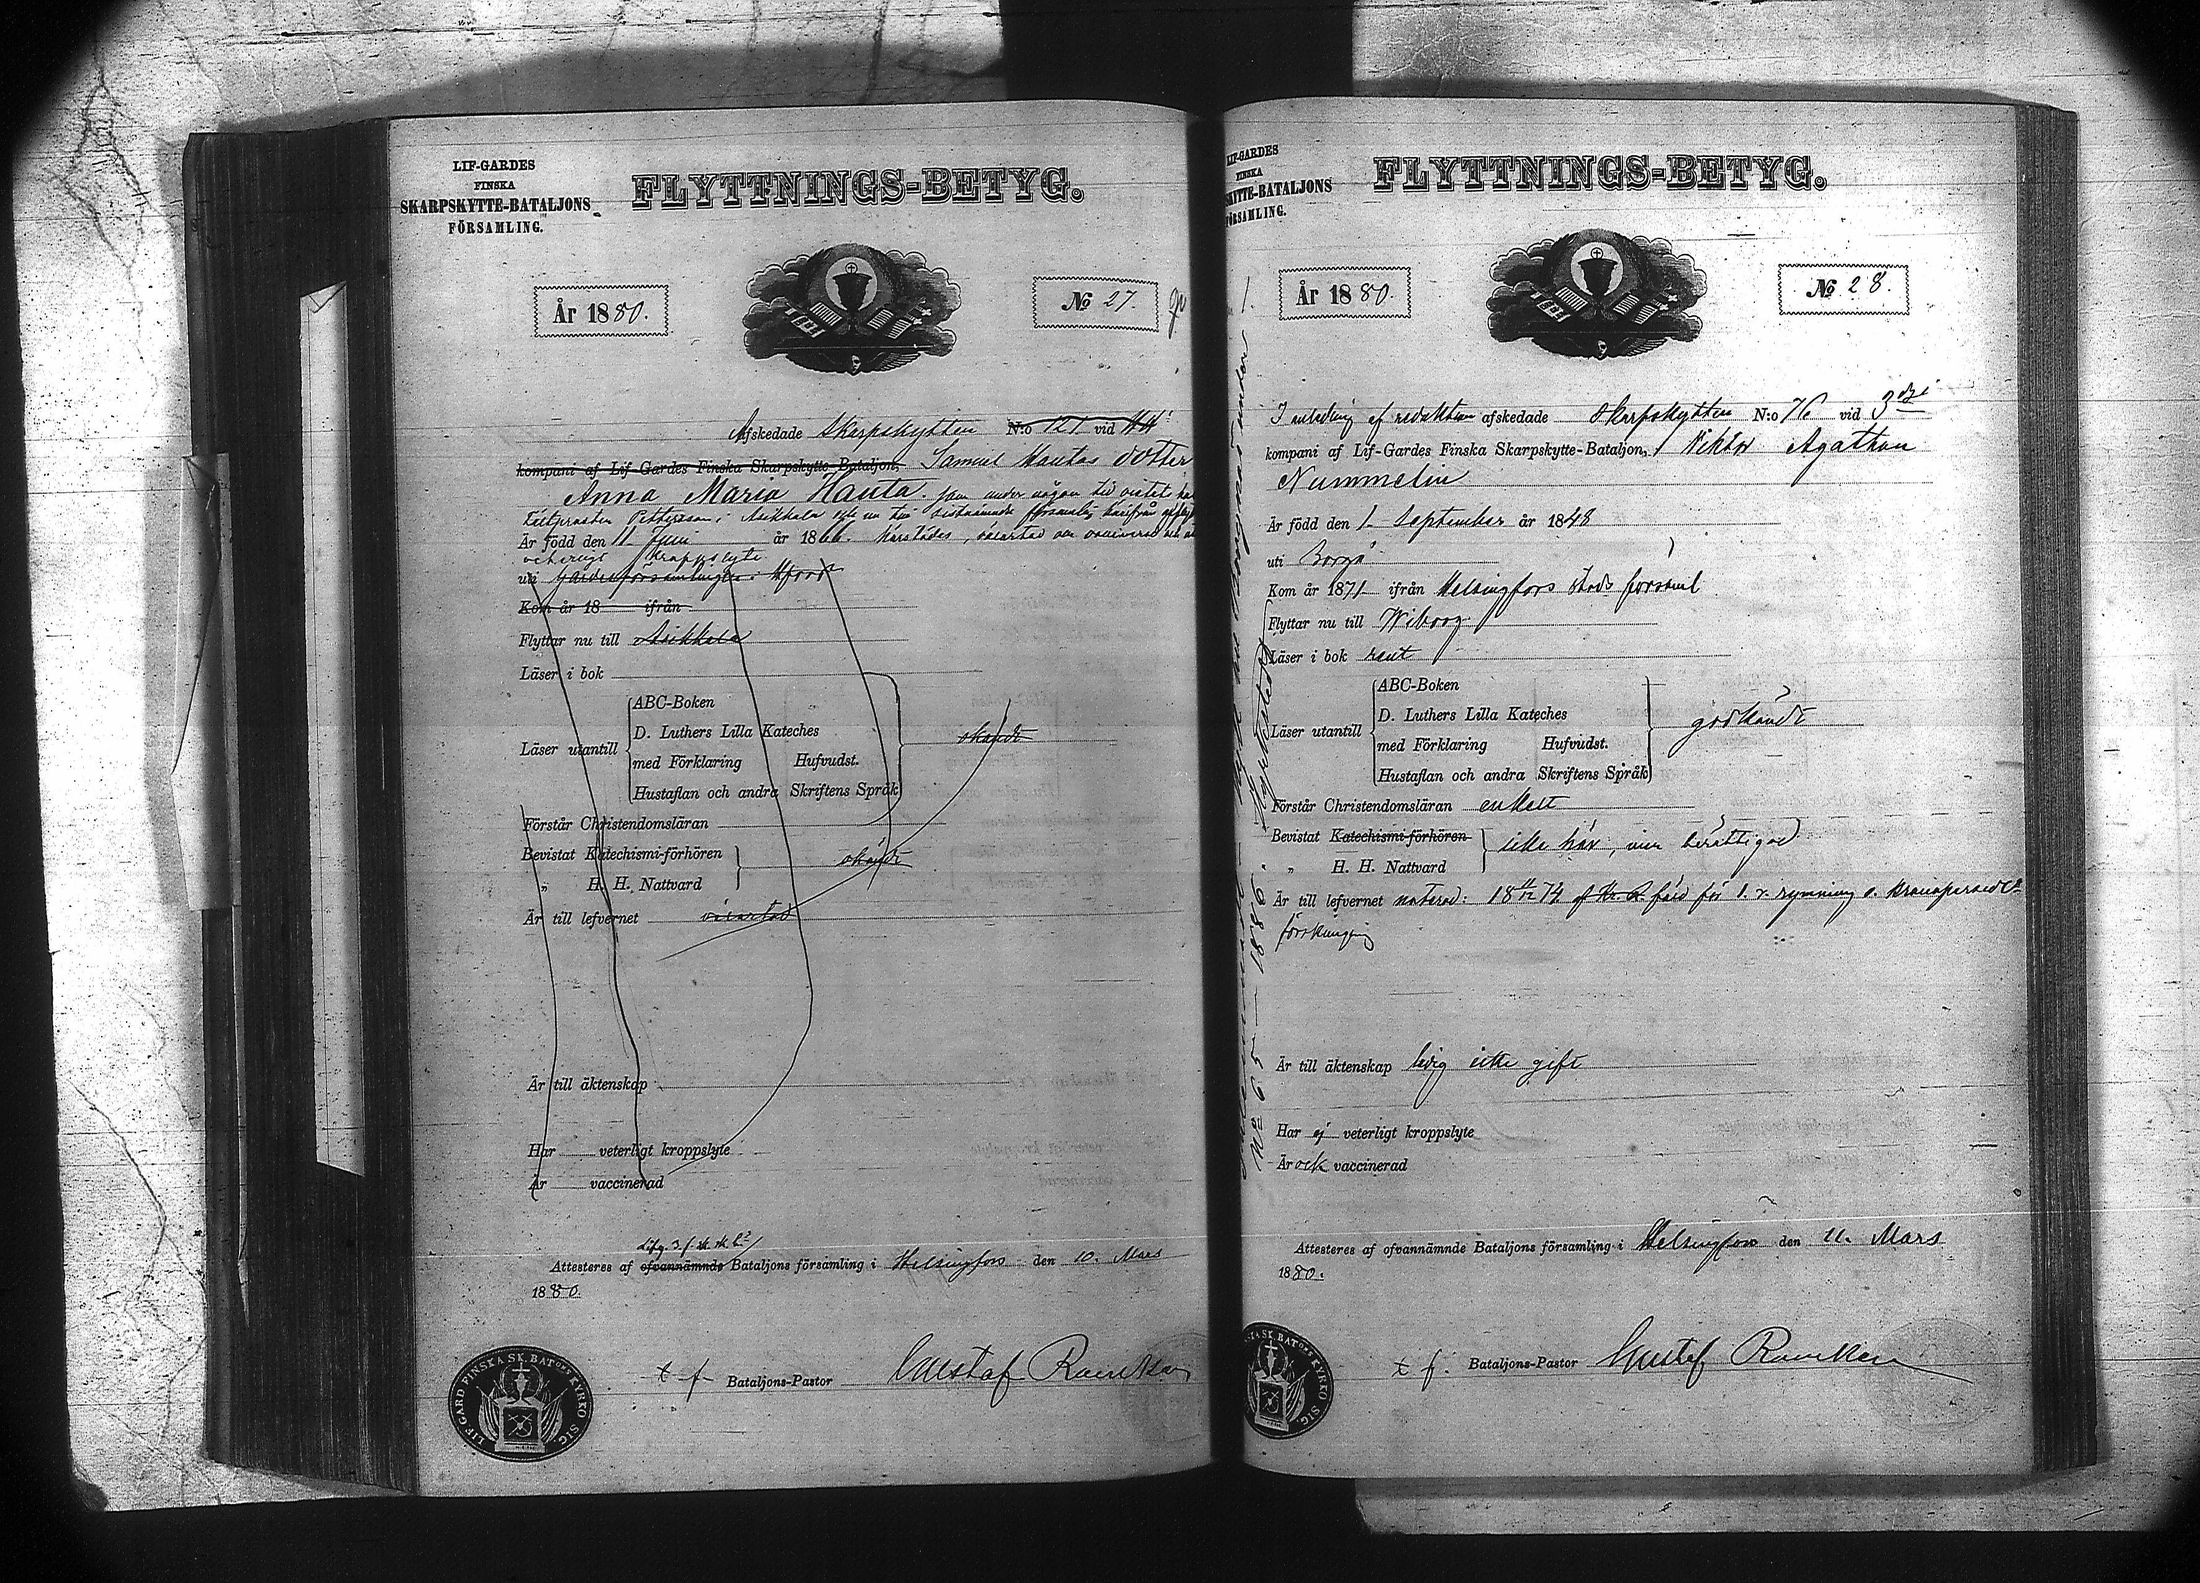 LIF-GARDES
FINSKA
SKARPSKYTTE-BATALJONS
FÖRSAMLING.
FLYTTNINGS-BETYG.
År 1880.
№ 27.
Afskedade Skarpskytten N:o 121 vid
kompani af Lif-Gardes Finska Skarpskytte-Bataljon, Samuel Hautas dotter
Anna Maria Hauta. som under någon tid vistat
i Asikkala
Är född den 11 Juni år 1866.
kroppslyte
uti Gardesförsamlingen i Hfors
Kom år 18 ifrån
Flyttar nu till Asikkala
Läser i bok
ABC-Boken
D. Luthers Lilla Kateches
Läser utantill
med Förklaring Hufvudst.
okändt
Hustaflan och andra Skriftens Språk
Förstår Christendomsläran
Bevistat Katechismi-förhören
okändt
„ H. H. Nattvard
Är till lefvernet oviartad
Är till äktenskap
Har veterligt kroppslyte
Är vaccinerad
Attesteres af ofvannämnde Bataljons församling i Helsingfors den 10. Mars
1880.
t f Bataljons-Pastor Gustaf
LIF-GARD FINSKA SK. BATONS KYRKO SIG.
LIF-GARDES
FINSKA
SKYTTE-BATALJONS
FÖRSAMLING.
FLYTTNINGS-BETYG.
År 1880.
№ 28.
I anledning af reduktion afskedade Skarpskytten N:o 76 vid 3dje
kompani af Lif-Gardes Finska Skarpskytte-Bataljon, Viktor Agathon
Nummelin
Är född den 1 September år 1848
uti Borgå
Kom år 1871 ifrån Helsingfors stads församl
Flyttar nu till Wiborg
Läser i bok rent
ABC-Boken
D. Luthers Lilla Kateches
Läser utantill
med Förklaring Hufvudst.
godkändt
Hustaflan och andra Skriftens Språk
Förstår Christendomsläran enkelt
Bevistat Katechismi-förhören
icke här, men berättigad
„ H. H. Nattvard
Är till lefvernet noterad: 18 74 af för 1. r. rymning o.
förskingring
Är till äktenskap ledig icke gift
Har ej veterligt kroppslyte
Är ock vaccinerad
Attesteres af ofvannämnde Bataljons församling i Helsingfors den 11. Mars
1880.
t f. Bataljons-Pastor Gustaf
SK. BATONS KYRKO SIG.
No 65 — 1886.